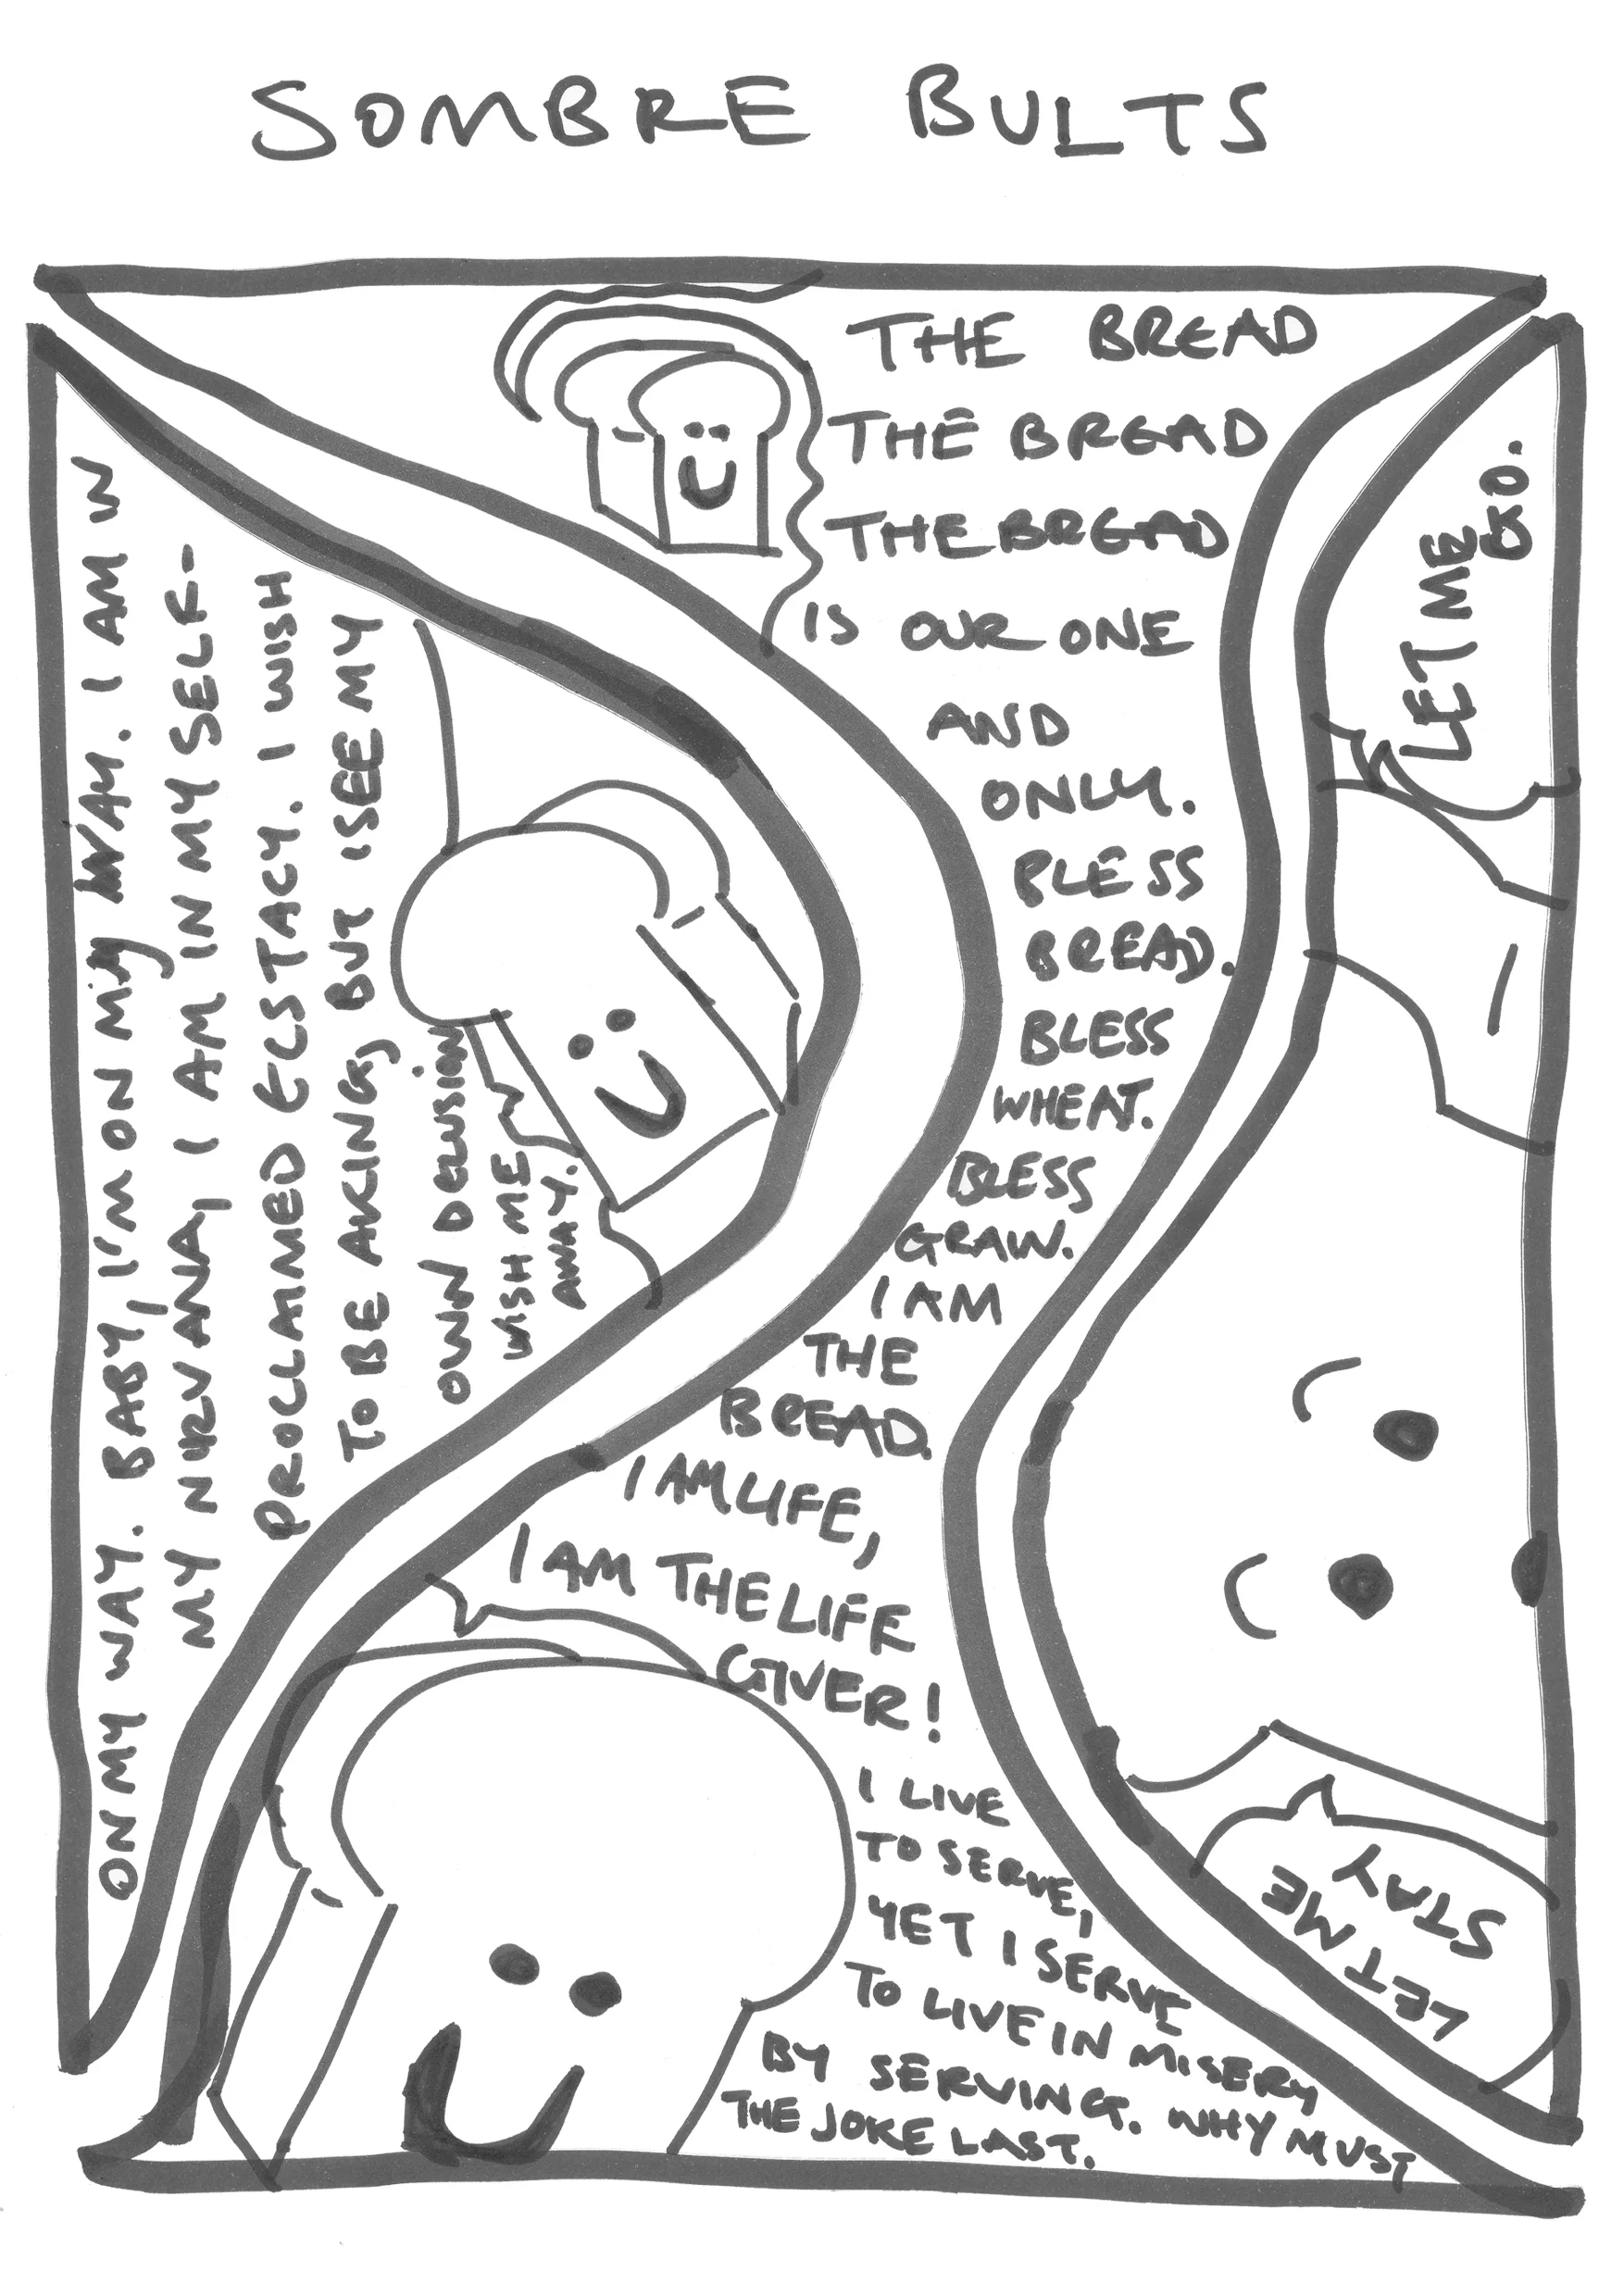 SOMBRE BULTS
THE BREAD
THE BREAD
THE BREAD
IS OUR ONE
AND
ONLY.
BLESS
BREAD.
BLESS
WHEAT.
BLESS
GRAIN.
I AM
THE
BREAD.
I AM LIFE,
I AM THE LIFE
GIVER!
I LIVE
TO SERVE,
YET I SERVE
TO LIVE IN MISERY
BY SERVING. WHY MUST
THE JOKE LAST.
ON MY WAY. BABY, I'M ON MY WAY. I AM IN
MY NIRVANA, I AM IN MY SELF-
PROCLAIMED ECSTACY. I WISH
TO BE A KING, BUT I SEE MY
OWN DELUSION
WISH ME
AWAY.
LET ME
GO.
LET ME
STAY